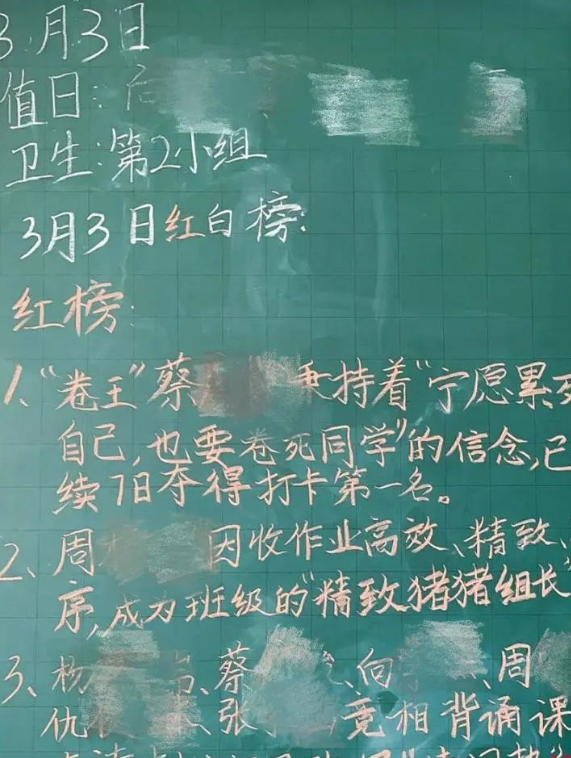 3月3日
值日:
卫生:第2小组
3月3日红白榜:
红榜:
1、“卷王”蔡 秉持着“宁愿累死
自己,也要卷死同学”的信念,已
续7日夺得打卡第一名。
2、周 因收作业高效、精致、
序,成为班级的“精致猪猪组长”
3、杨 、蔡 、向 、周
仇 、张 竞相背诵课